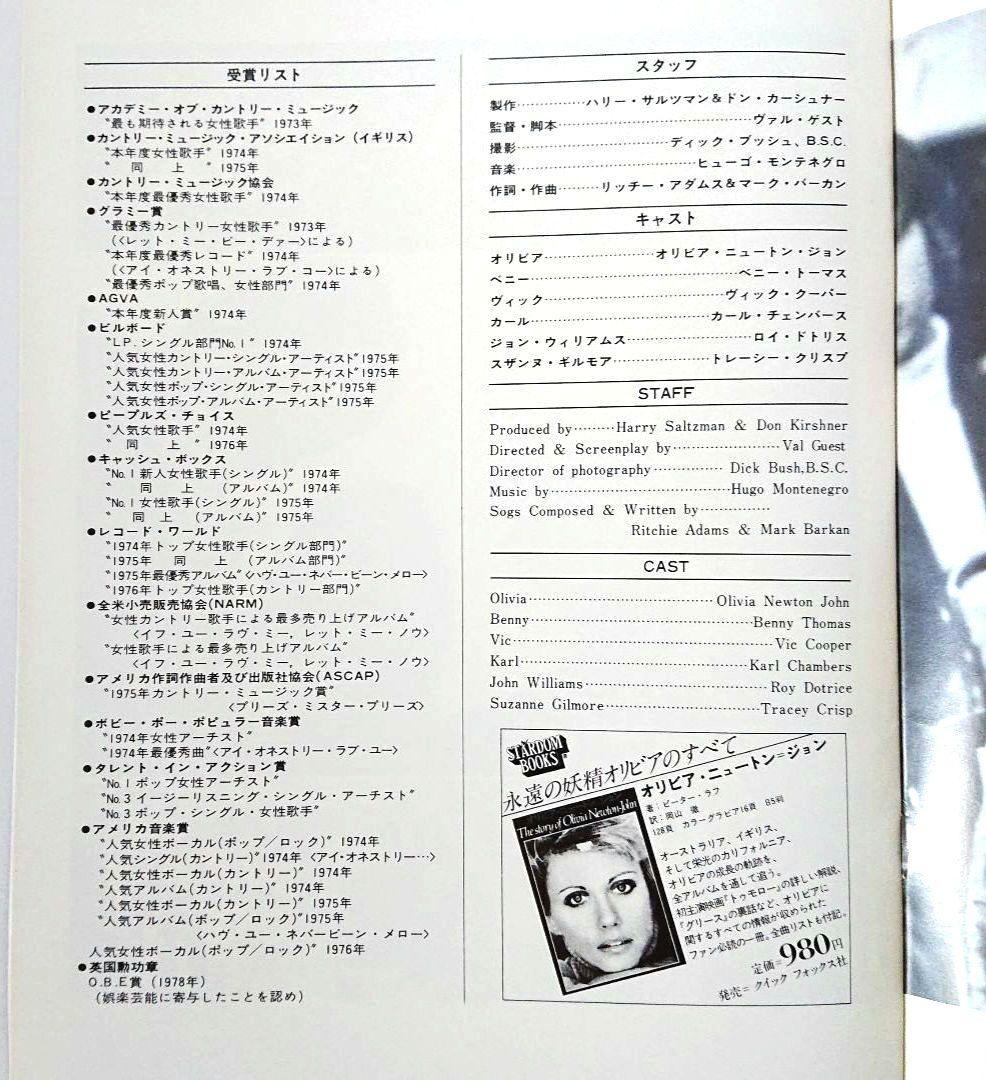 受賞リスト
●アカデミー・オブ・カントリー・ミュージック
〝最も期待される女性歌手〞1973年
●カントリー・ミュージック・アソシエイション（イギリス）
〝本年度女性歌手〞1974年
〝　同　上　〞1975年
●カントリー・ミュージック協会
〝本年度最優秀女性歌手〞1974年
●グラミー賞
〝最優秀カントリー女性歌手〞1973年
（〈レット・ミー・ビー・デァー〉による）
〝本年度最優秀レコード〞1974年
（〈アイ・オネストリー・ラブ・コー〉による）
〝最優秀ポップ歌唱、女性部門〞1974年
●AGVA
〝本年度新人賞〞1974年
●ビルボード
〝LP.シングル部門No.1〞1974年
〝人気女性カントリー・シングル・アーティスト〞1975年
〝人気女性カントリー・アルバム・アーティスト〞1975年
〝人気女性ポップ・シングル・アーティスト〞1975年
〝人気女性ポップ・アルバム・アーティスト〞1975年
●ピープルズ・チョイス
〝人気女性歌手〞1974年
〝　同　上　〞1976年
●キャッシュ・ボックス
〝No.1新人女性歌手（シングル）〞1974年
〝　同　上　（アルバム）〞1974年
〝No.1女性歌手（シングル）〞1975年
〝　同　上　（アルバム）〞1975年
●レコード・ワールド
〝1974年トップ女性歌手（シングル部門）〞
〝1975年　同　上　（アルバム部門）〞
〝1975年最優秀アルバム〞〈ハヴ・ユー・ネバー・ビーン・メロー〉
〝1976年トップ女性歌手（カントリー部門）〞
●全米小売販売協会（NARM）
〝女性カントリー歌手による最多売り上げアルバム〞
〈イフ・ユー・ラヴ・ミー，レット・ミー・ノウ〉
〝女性歌手による最多売り上げアルバム〞
〈イフ・ユー・ラヴ・ミー，レット・ミー・ノウ〉
●アメリカ作詞作曲者及び出版社協会（ASCAP）
〝1975年カントリー・ミュージック賞〞
〈プリーズ・ミスター・プリーズ〉
●ボビー・ポー・ポピュラー音楽賞
〝1974年女性アーチスト〞
〝1974年最優秀曲〞〈アイ・オネストリー・ラブ・ユー〉
●タレント・イン・アクション賞
〝No.1ポップ女性アーチスト〞
〝No.3イージーリスニング・シングル・アーチスト〞
〝No.3ポップ・シングル・女性歌手〞
●アメリカ音楽賞
〝人気女性ボーカル（ポップ／ロック）〞1974年
〝人気シングル（カントリー）〞1974年〈アイ・オネストリー…〉
〝人気女性ボーカル（カントリー）〞1974年
〝人気アルバム（カントリー）〞1974年
〝人気女性ボーカル（カントリー）〞1975年
〝人気アルバム（ポップ／ロック）〞1975年
〈ハヴ・ユー・ネバービーン・メロー〉
人気女性ボーカル（ポップ／ロック）〞1976年
●英国勲功章
O.B.E賞（1978年）
（娯楽芸能に寄与したことを認め）
スタッフ
製作……………ハリー・サルツマン＆ドン・カーシュナー
監督・脚本……………ヴァル・ゲスト
撮影……………ディック・ブッシュ、B.S.C.
音楽……………ヒューゴ・モンテネグロ
作詞・作曲………リッチー・アダムス＆マーク・バーカン
キャスト
オリビア……………オリビア・ニュートン・ジョン
ベニー……………ベニー・トーマス
ヴィック……………ヴィック・クーパー
カール……………カール・チェンバース
ジョン・ウィリアムス……………ロイ・ドトリス
スザンヌ・ギルモア……………トレーシー・クリスプ
STAFF
Produced by………Harry Saltzman & Don Kirshner
Directed & Screenplay by……………Val Guest
Director of photography……………Dick Bush,B.S.C.
Music by……………Hugo Montenegro
Sogs Composed & Written by……………
Ritchie Adams & Mark Barkan
CAST
Olivia……………Olivia Newton John
Benny……………Benny Thomas
Vic……………Vic Cooper
Karl……………Karl Chambers
John Williams……………Roy Dotrice
Suzanne Gilmore……………Tracey Crisp
STARDOM
BOOKS
永遠の妖精オリビアのすべて
オリビア・ニュートン＝ジョン
著：ピーター・ラフ
訳：岡山 徹
128頁 カラーグラビア16頁 B5判
The story of Olivia Newton-John
オーストラリア、イギリス、
そして栄光のカリフォルニア、
オリビアの成長の軌跡を、
全アルバムを通して追う。
初主演映画『トゥモロー』の詳しい解説、
『グリース』の裏話など、オリビアに
関するすべての情報が収められた
ファン必読の一冊。全曲リストも付記。
定価＝980円
発売＝クイック フォックス社